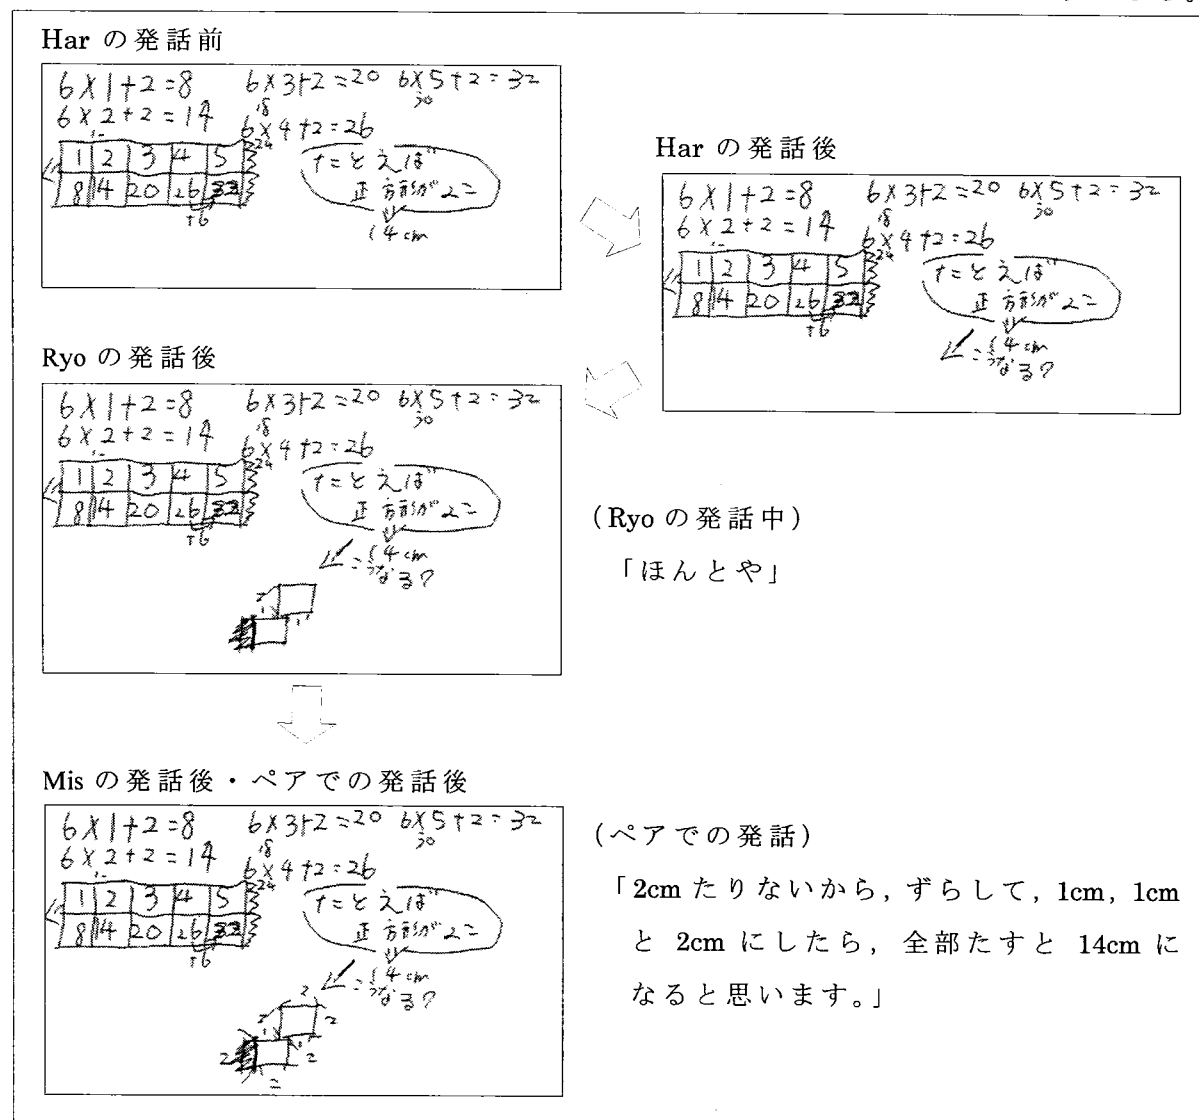 Har の発話前
6×1+2=8 6×3+2=20 6×5+2=32
18 30
6×2+2=14 6×4+2=26
24
1 2 3 4 5
8 14 20 26 32
+6
たとえば
正方形が2こ
14cm
Har の発話後
6×1+2=8 6×3+2=20 6×5+2=32
18 30
6×2+2=14 6×4+2=26
24
1 2 3 4 5
8 14 20 26 32
+6
たとえば
正方形が2こ
14cm
なる?
Ryo の発話後
6×1+2=8 6×3+2=20 6×5+2=32
18 30
6×2+2=14 6×4+2=26
24
1 2 3 4 5
8 14 20 26 32
+6
たとえば
正方形が2こ
14cm
なる?
2
1
1
(Ryo の発話中)
「ほんとや」
Mis の発話後・ペアでの発話後
6×1+2=8 6×3+2=20 6×5+2=32
18 30
6×2+2=14 6×4+2=26
24
1 2 3 4 5
8 14 20 26 32
+6
たとえば
正方形が2こ
14cm
なる?
2
2 2
1 1
2 2
2
(ペアでの発話)
「2cm たりないから, ずらして, 1cm, 1cm
と 2cm にしたら, 全部たすと 14cm に
なると思います。」